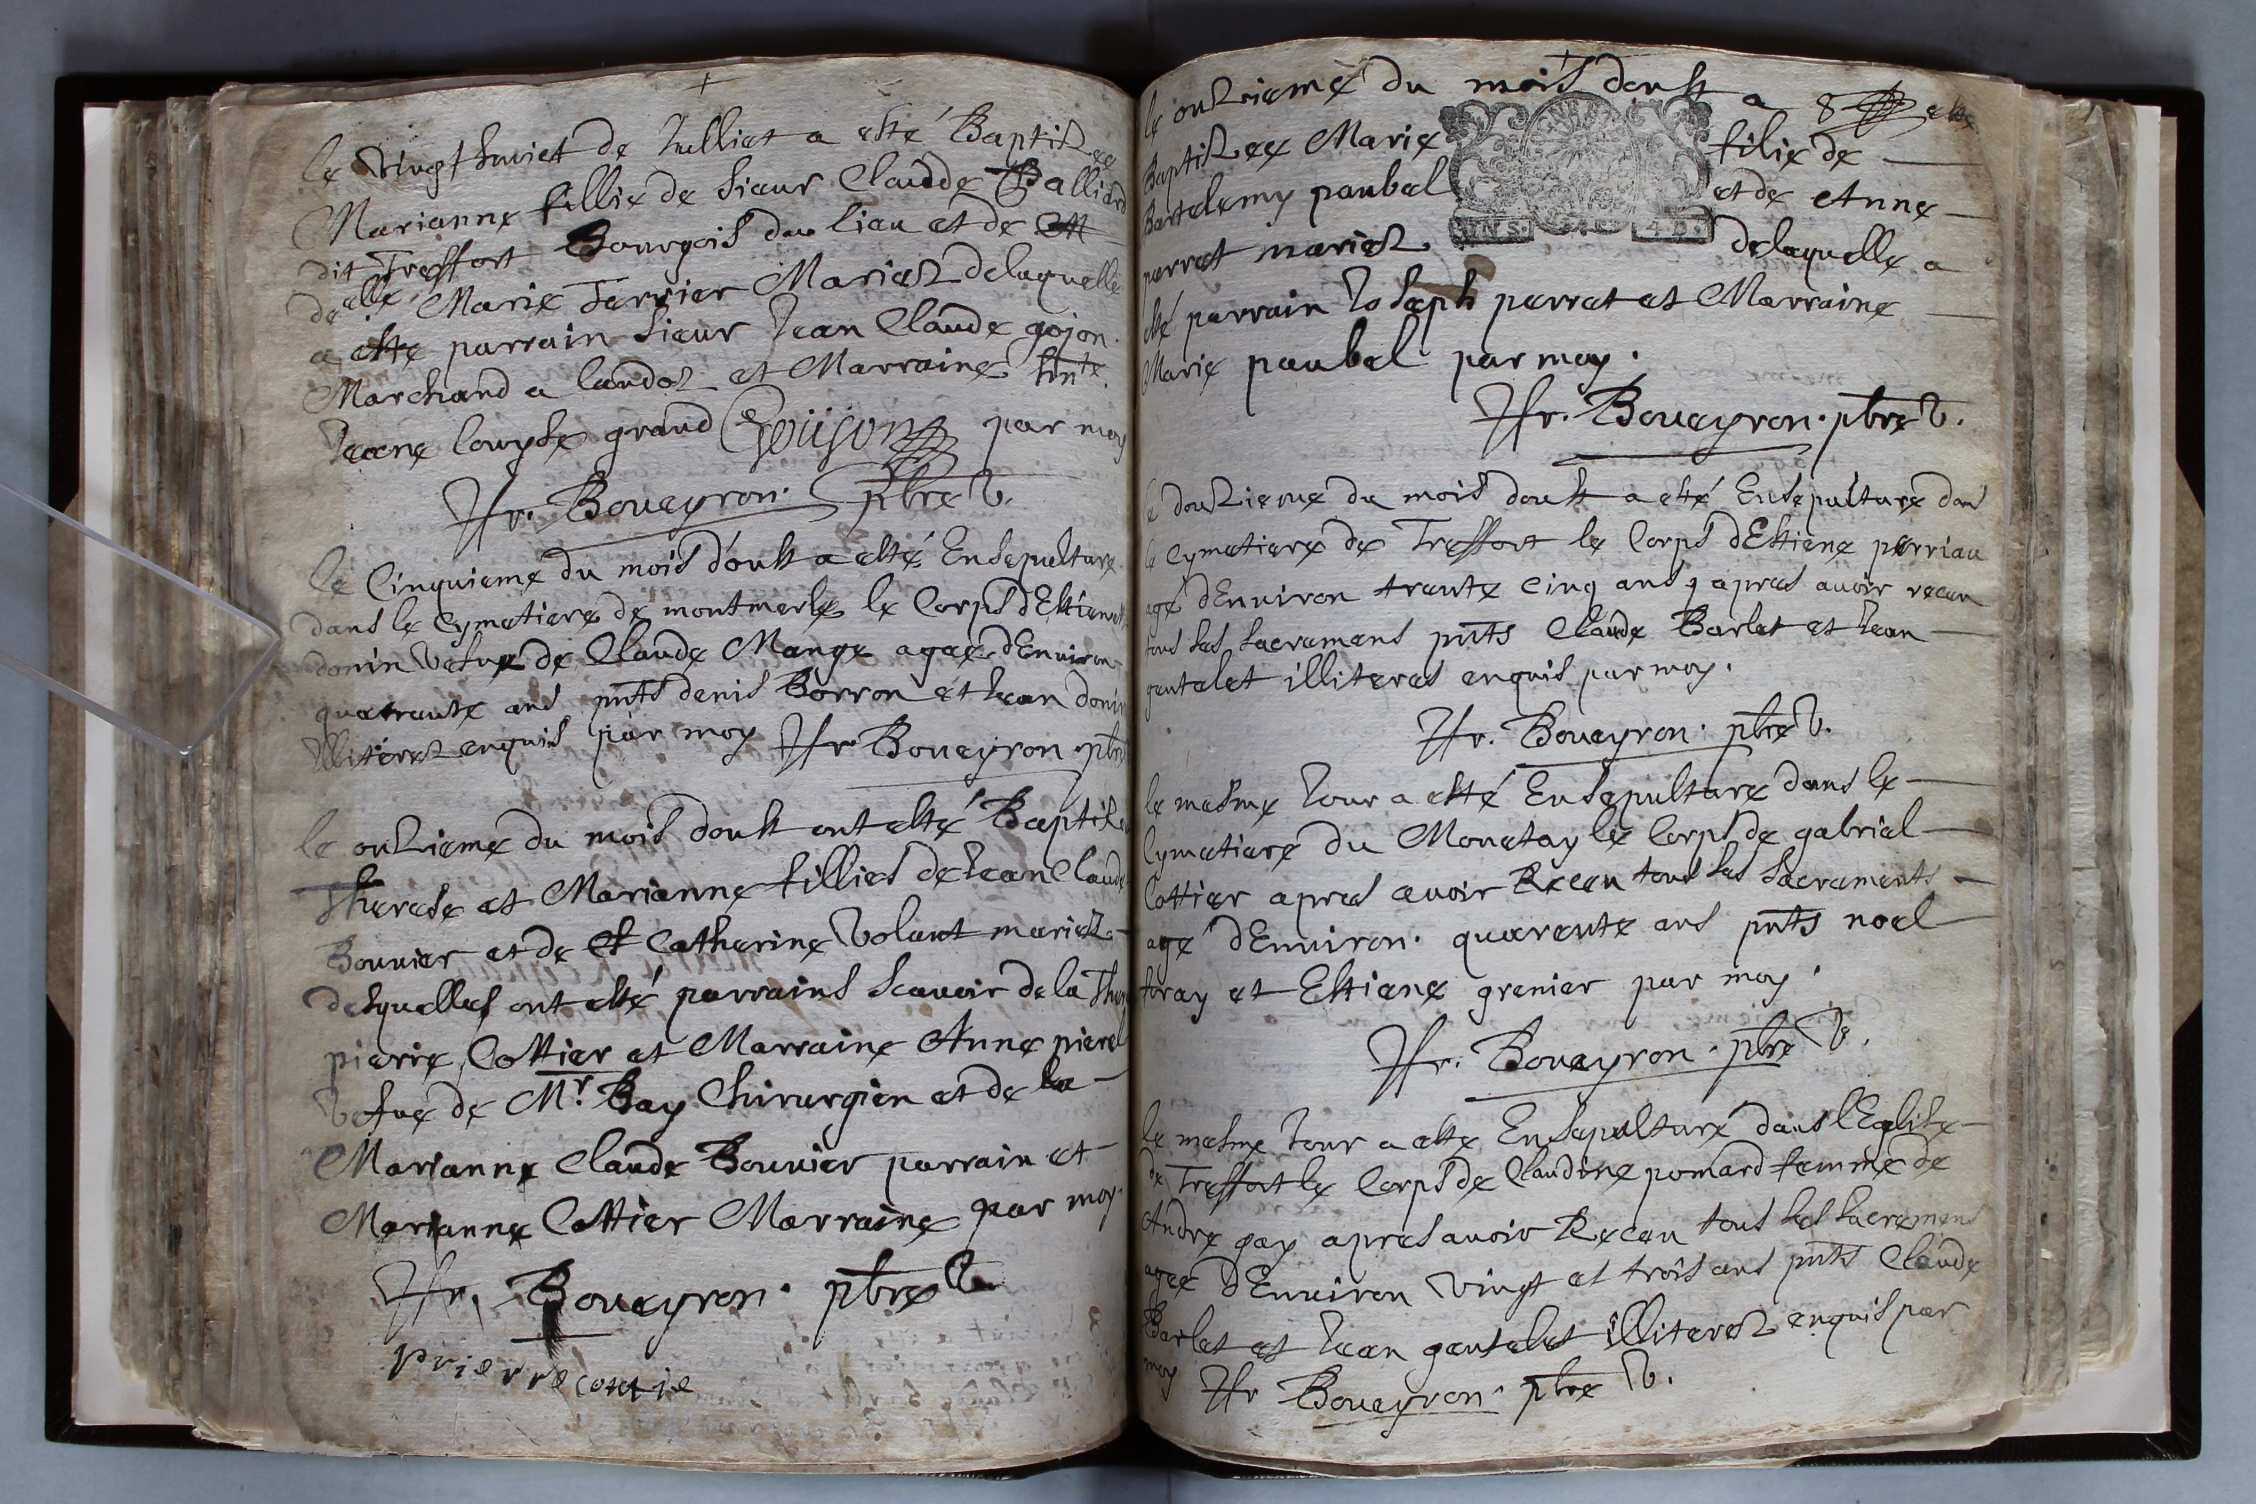 le vingt huict de Julliet a esté Baptizee
Marianne fillie de sieur Claude Balliard
dit Treffort Bourgois du lieu et de
delle Marie Terrier Mariez delaquelle
a este parrain sieur Jean Claude gojon
Marchand a landoz et Marraine hnte
Jeane louyse grand Goüjon par moy
Hr. Boueyron. pbre V.
le Cinquieme du mois d'oust a esté Ensepulturé
dans le Cymetiere de montmerle le Corps d'Estienette
donin Vefue de Claude Mange agee d'Enuiron
quatrante ans pnts denis Borron et Jean donin
Illiterez enquis par moy Hr Boueyron. pbre
le onzieme du mois doust ont esté Baptisee
Therese et Marianne fillies de Jean Claude
Bouuier et de Catherine Volant mariez
desquelles ont esté parrains scauoir de la There
pierre Cottier et Marraine Anne pierel
Vefue de Mr. Bay Chirurgien et de la
Marianne Claude Bouuier parrain et
Marianne Cottier Marraine par moy.
Hr. Boueyron. pbre V.
Prierre cottie
le onzieme du mois doust a esté
Baptizee Marie filie de
Bartelemy paubel et de Anne
perret mariez delaquelle a
MNS. 4. D.
esté parrain Joseph perret et Marraine
Marie paubel par moy.
Hr. Boueyron. pbre V.
le douzieme du mois doust a esté Ensepulturé dans
le Cymetiere de Treffort le Corps d'Estiene perriau
agé d'Enuiron trante cinq ans apres auoir receu
tous les sacremens pnts Claude Barlet et Jean
gentelet illiteres enquis par moy.
Hr. Boueyron. pbre V.
le mesme Jour a esté Ensepulturé dans le
Cymetiere du Monetay le Corps de gabriel
Cottier apres auoir Receu tous les sacraments
agé d'Enuiron. quarente ans pnts noel
foray et Estiene grenier par moy.
Hr. Boueyron. pbre V.
le mesme Jour a este Ensepulturé dans l'Eglise
de Treffort le Corps de Claudine pomard femme de
Andre gay apres auoir Receu tous les sacremens
agee d'Enuiron vingt et trois ans pnts Claude
Barlet et Jean gentelet illiterez enquis par
moy Hr Boueyron. pbre V.